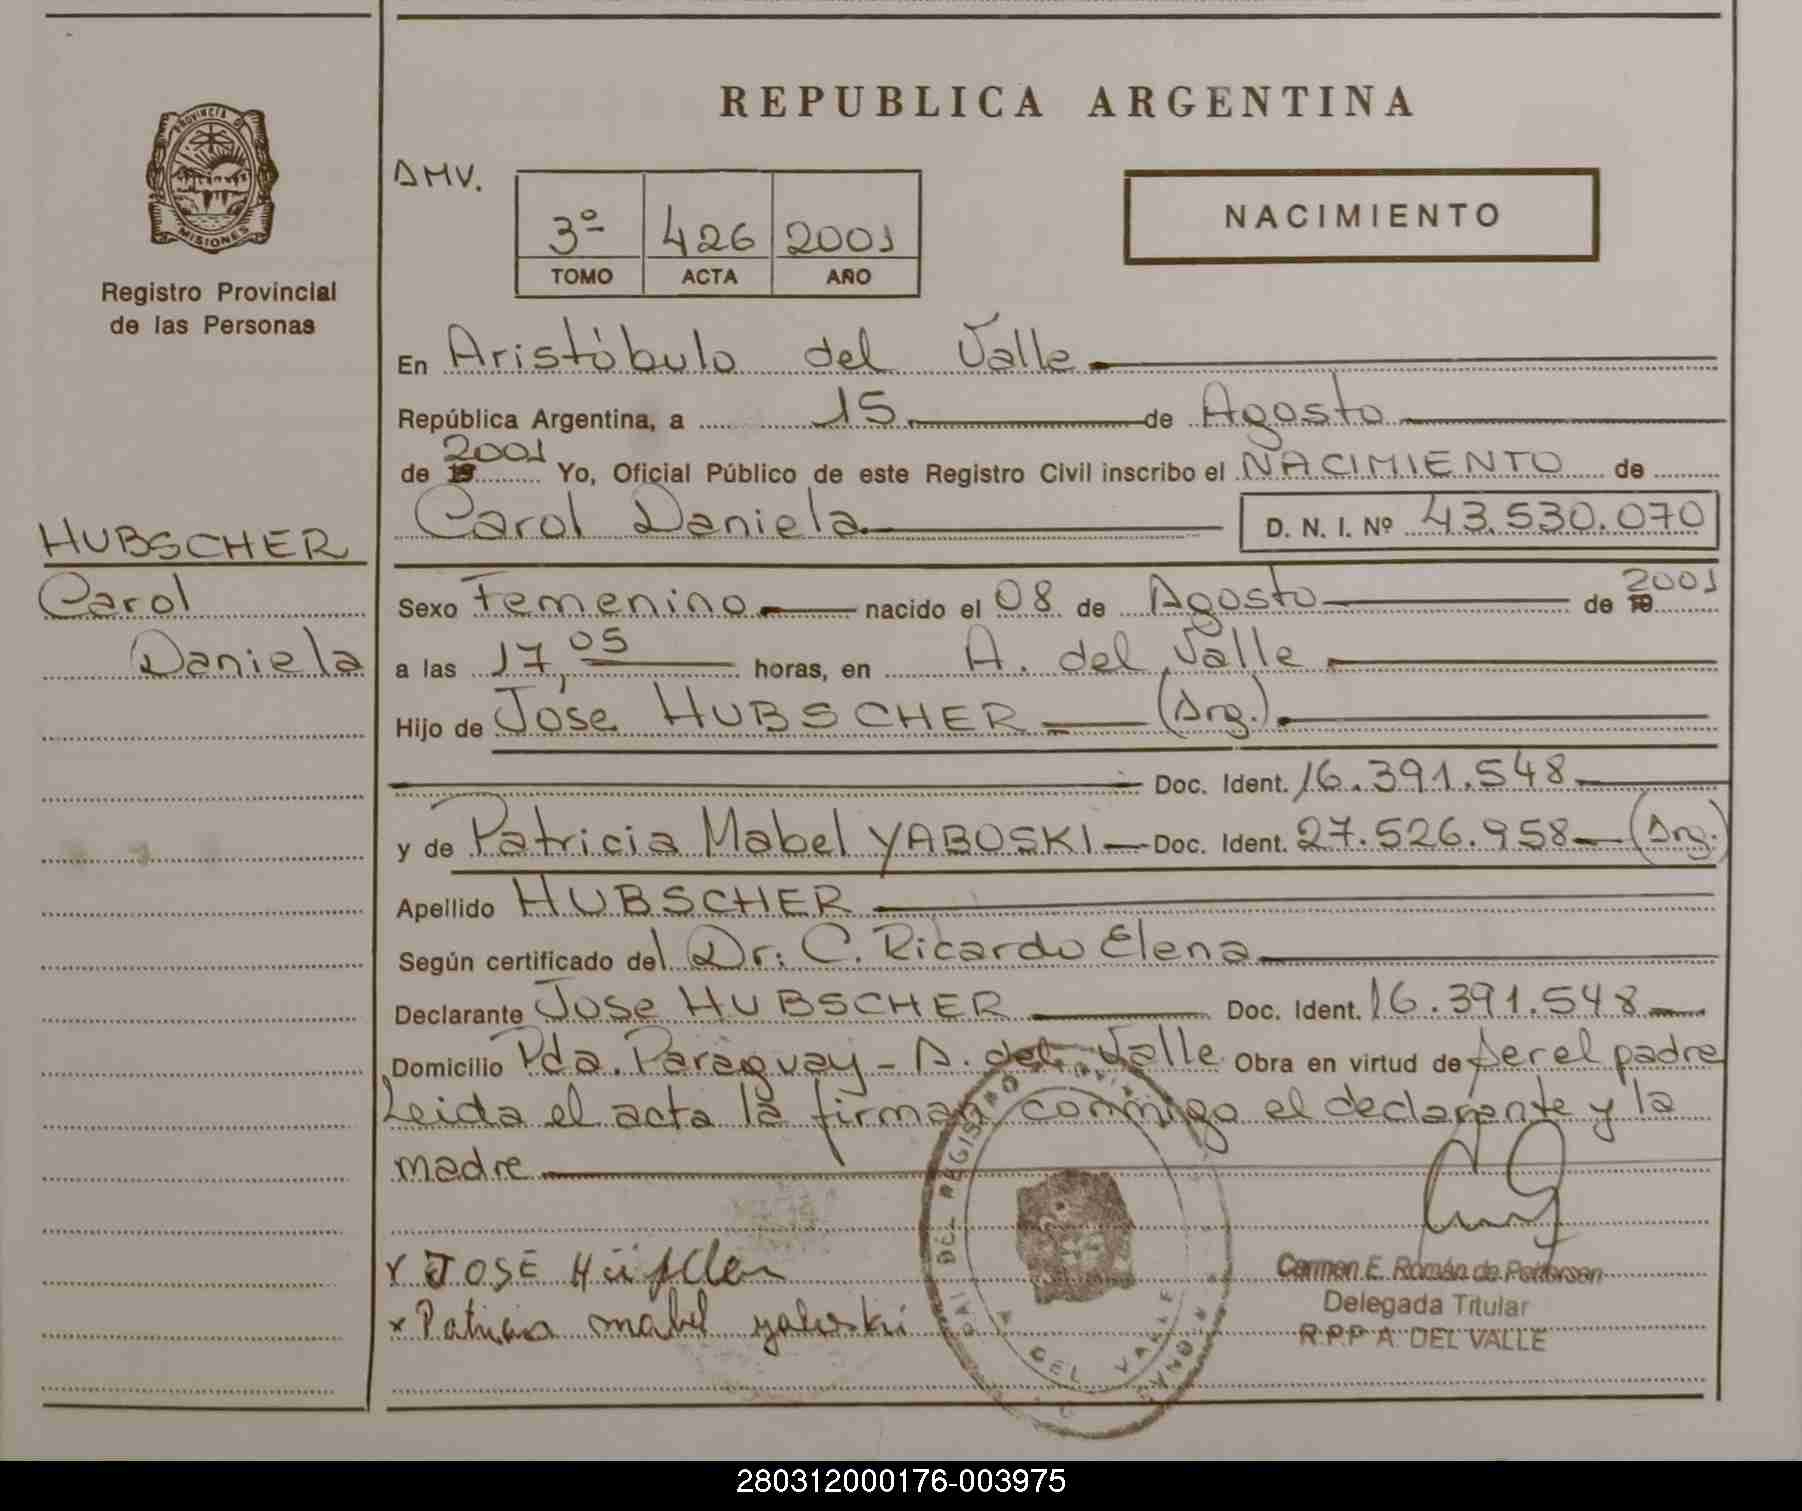 REPUBLICA ARGENTINA
PROVINCIA DE
MISIONES
Registro Provincial
de las Personas
AMV.
3º 426 2001
TOMO ACTA AÑO
NACIMIENTO
En Aristóbulo del Valle
República Argentina, a 15 de Agosto
de 19 2001 Yo, Oficial Público de este Registro Civil inscribo el NACIMIENTO de
Carol Daniela D. N. I. Nº 43.530.070
HUBSCHER
Carol
Daniela
Sexo Femenino nacido el 08 de Agosto de 19 2001
a las 17,05 horas, en A. del Valle
Hijo de José HUBSCHER (Arg.)
Doc. Ident. 16.391.548
y de Patricia Mabel YABOSKI Doc. Ident. 27.526.958 (Arg.)
Apellido HUBSCHER
Según certificado del Dr: C. Ricardo Elena
Declarante Jose HUBSCHER Doc. Ident. 16.391.548
Domicilio Pda. Paraguay - A. del Valle Obra en virtud de ser el padre
Leida el acta la firman conmigo el declarante y la
madre
x JOSÉ
x Patricia mabel yaboski
DEL REGISTRO
A. DEL VALLE
Carmen E. Román de Pettersen
Delegada Titular
R.P.P A. DEL VALLE
280312000176-003975